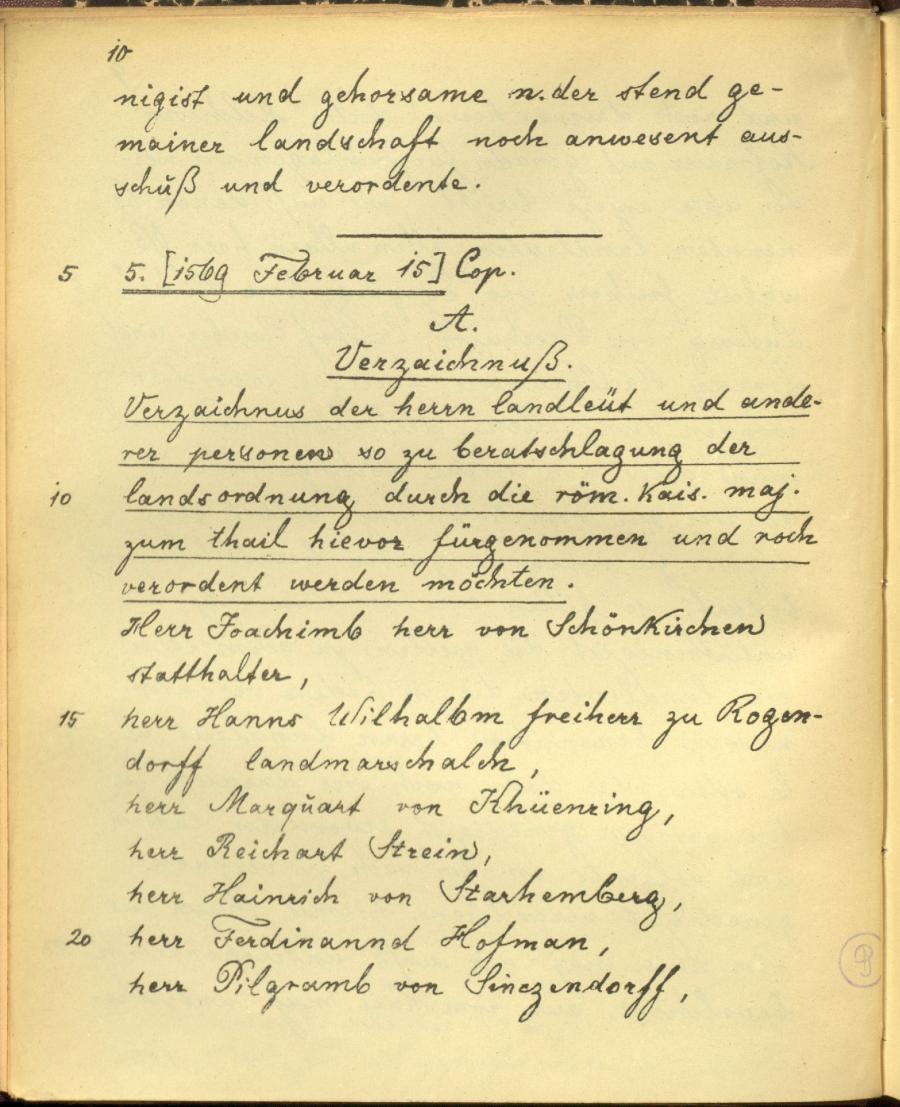 10
nigist und gehorsame n. der stend ge-
mainer landschaft noch anwesent aus-
schŭß und verordente.
5 5. [1569 Februar 15] Cop.
A.
Verzaichnuß.
Verzaichnus der herrn landleüt und ande-
rer personen so zu beratschlagung der
10 landsordnung durch die röm. Kais. maj.
zum thail hievor fürgenommen und noch
verordent werden möchten.
Herr Joachimb herr von Schönkirchen
statthalter,
15 herr Hanns Wilhalbm freiherr zu Rogen-
dorff landmarschalch,
herr Marqŭart von Khüenring,
herr Reichart Strein,
herr Hainrich von Starhemberg,
20 herr Ferdinannd Hofman,
herr Pilgramb von Sinczendorff,